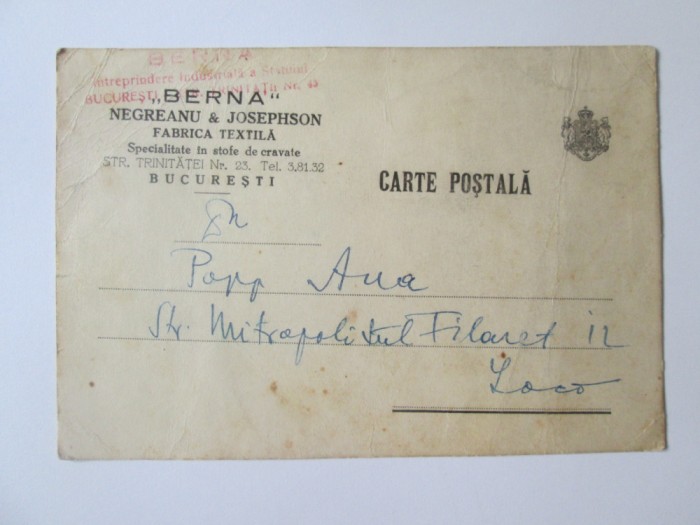 BERNA
Intreprindere Industrială a Statului
BUCUREȘTI, STR. TRINITĂȚII Nr. 23
„BERNA“
NEGREANU & JOSEPHSON
FABRICA TEXTILĂ
Specialitate in stofe de cravate
STR. TRINITĂȚEI Nr. 23. Tel. 3.81.32
BUCUREȘTI
CARTE POȘTALĂ
Popp Ana
Str. Mitropolitul Filaret 12
Loco